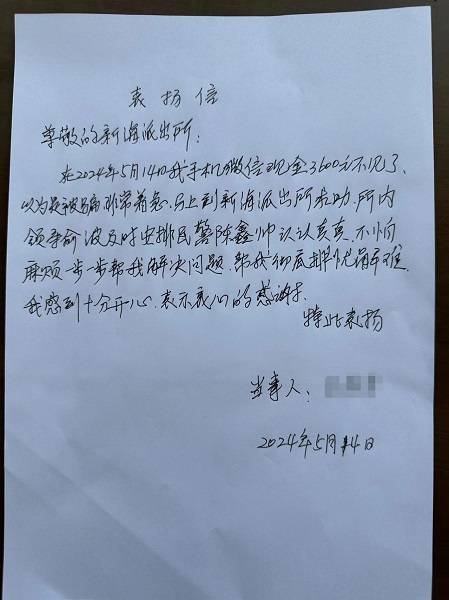 表扬信
尊敬的新海派出所：
在2024年5月14日我手机微信现金3600元不见了,
以为是被骗非常着急.马上到新海派出所求助.所内
领导俞波及时安排民警陈鑫帅认认真真.不怕
麻烦一步一步帮我解决问题.帮我彻底排忧解难.
我感到十分开心.表示衷心的感谢.
特此表扬
当事人：
2024年5月14日